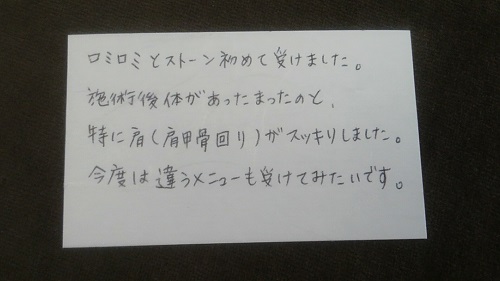 ロミロミとストーン初めて受けました。
施術後体があったまったのと、
特に肩(肩甲骨回り)がスッキリしました。
今度は違うメニューも受けてみたいです。